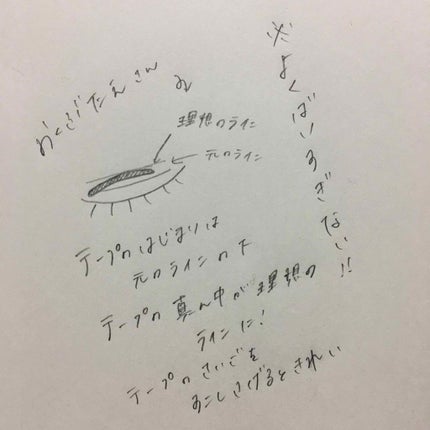 おくぶたえさん
※よくばりすぎない!!
理想のライン
元のライン
テープのはじまりは
元のラインの下
テープの真ん中が理想の
ラインに!
テープのさいごを
すこしさげるときれい